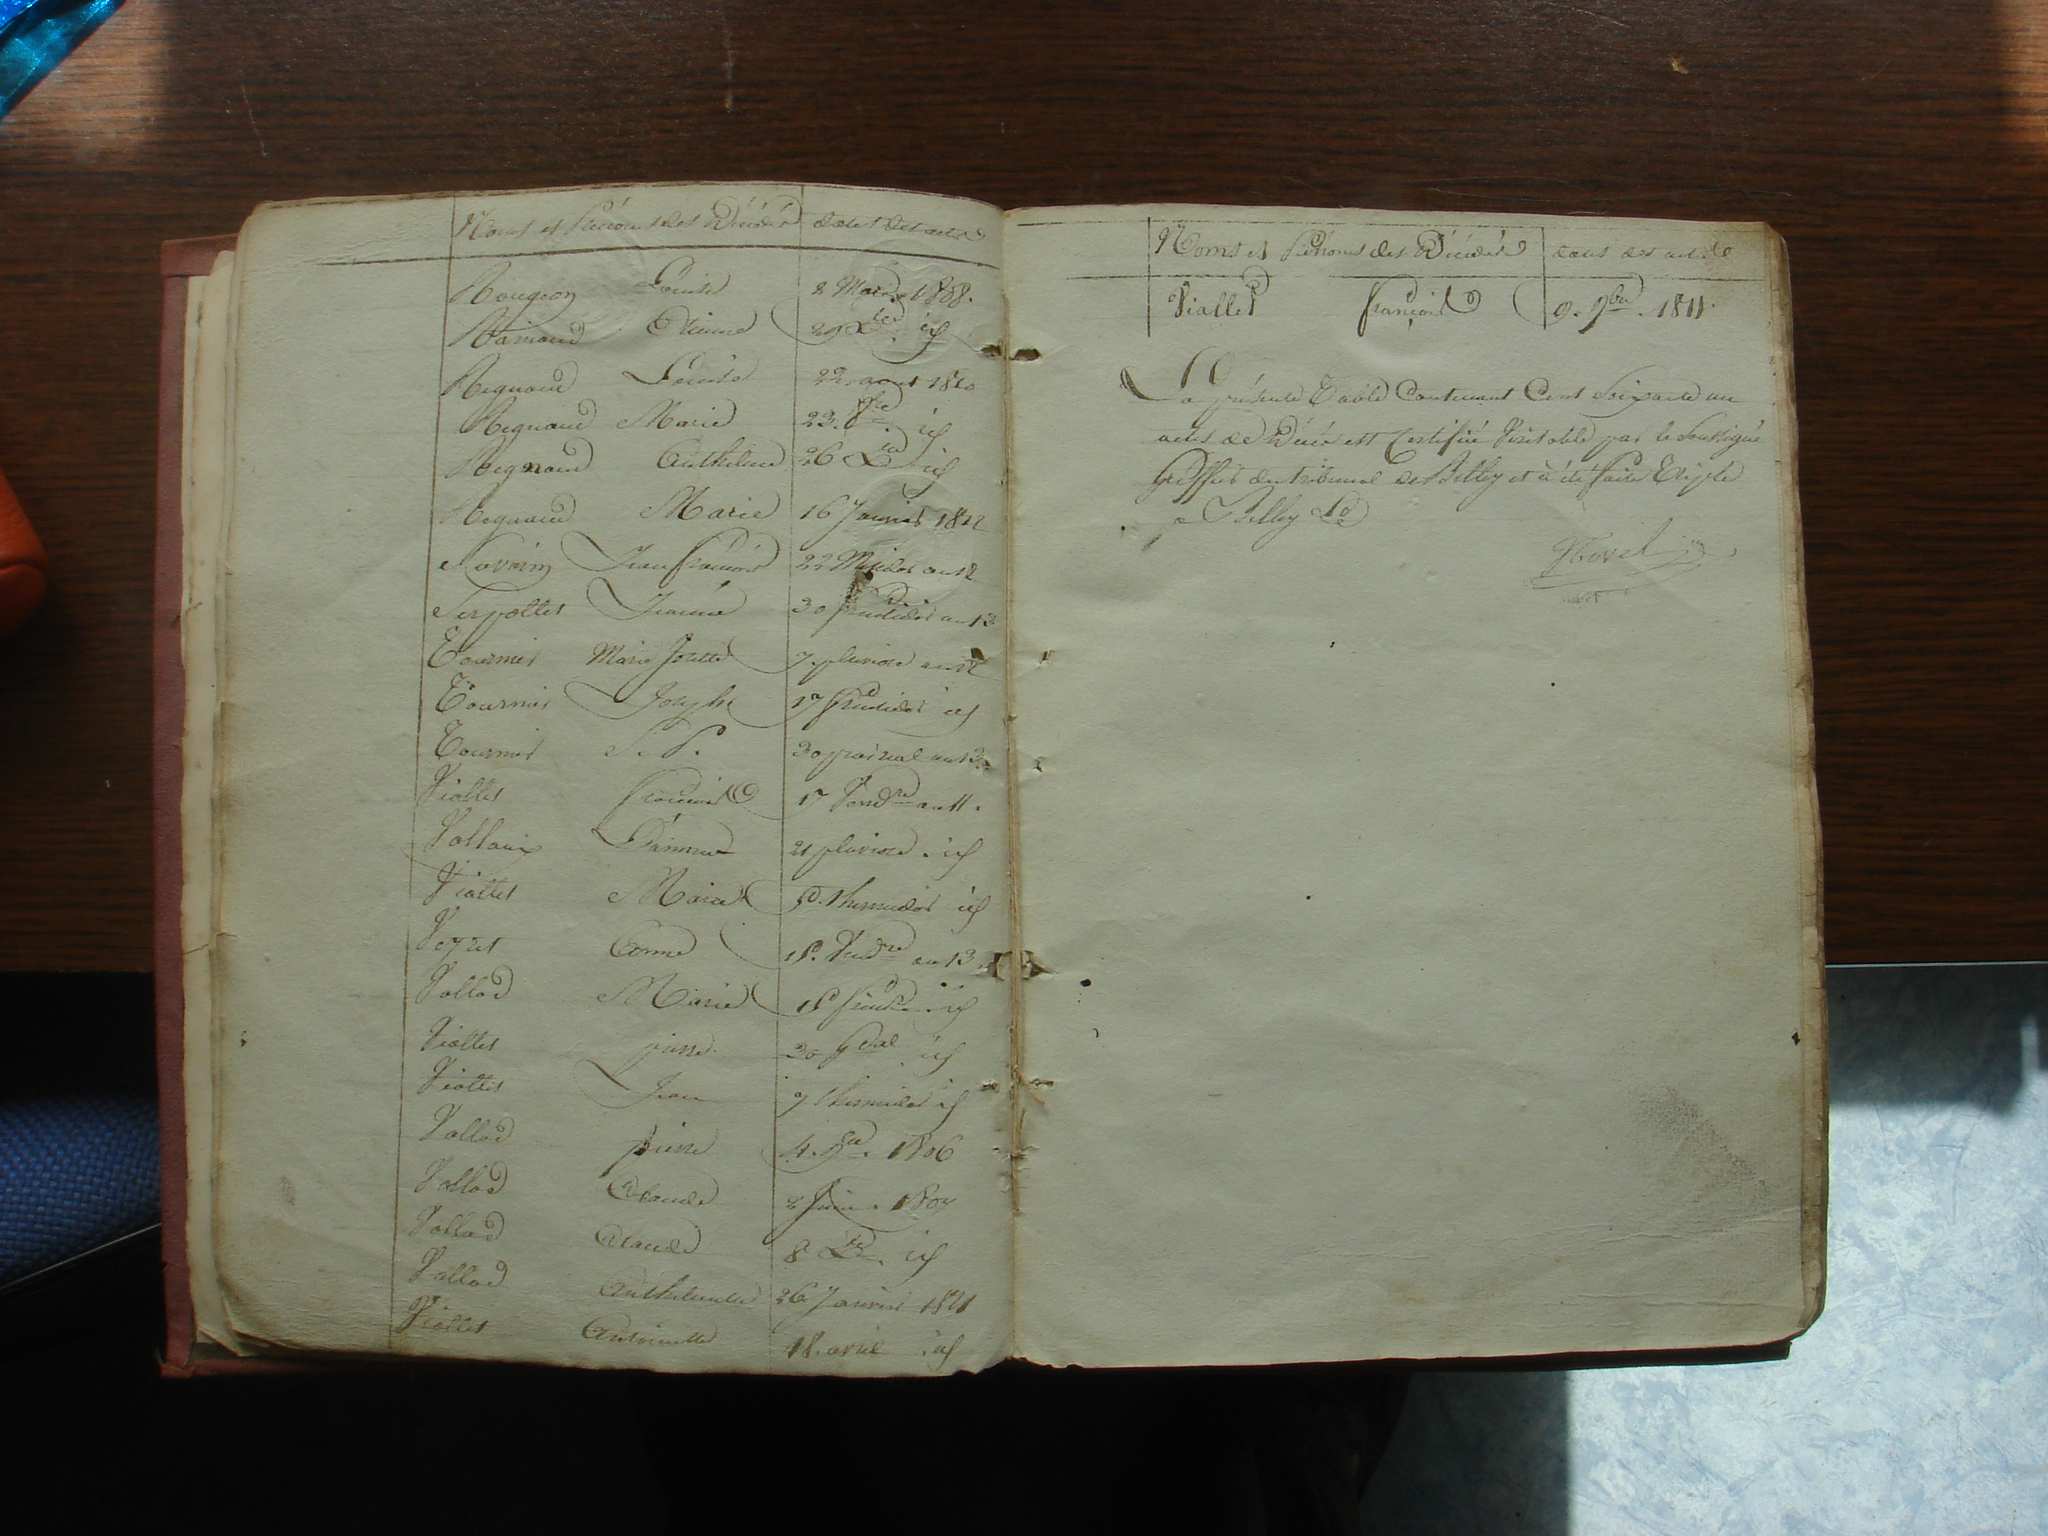 Noms et Prénoms des Décédés dates des actes
Rougeon Louise 2 Mars 1808.
Ramand Etienne 29 Xbre id
Regnaud Louise 22 aout 1810
Regnaud Marie 23. id
Regnaud Anthelme 26 Xbre id
Regnaud Marie 16 Janvier 1812
Savarin Jean françois 22 Messidor an 12
Serpollet Jeanne 30 fructidor an 13
Tournier Marie Josette 7. pluviose an 12
Tournier Joseph 17 fructidor id
Tournier S. P. 30 prairial an 13.
Viallet françois 17 Vendre an 11.
Vallaix 21 pluviose. id
Viallet Marie thermidor id
Veyret 18. Vendre an 13
Vallod Marie 18 id
Viallet pierre 30 id
Viallet Jean 9 thermidor id
Vallod pierre 4. 1806
Vallod Claude 2 Juin. 1807
Vallod Claude 8 Xbre. id
Vallod Anthelmette 26 Janvier 1811
Viallet Antoinette 18. avril. id
Noms et Prénoms des Décédés dates des actes
Viallet françois 9. 9bre. 1811.
La présente Table Contenant Cent Soixante un
actes de Décès est Certifiée Véritable par le Soussigné
Greffier du tribunal de Belley et a été faite Triple
a Belley Le